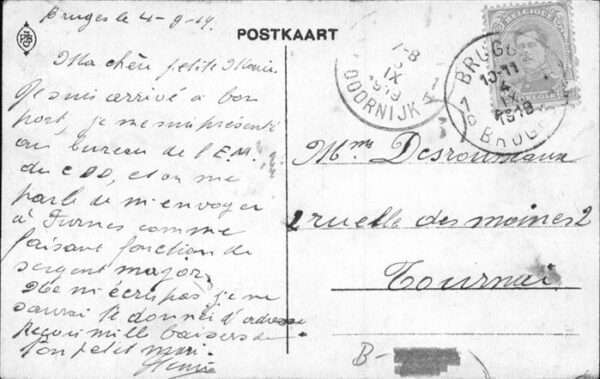 Bruges le 4-9-19.
POSTKAART
Ma chère petite Marie
Je suis arrivé à bon
port, je me suis présenté
au bureau de l'E.M.
du CDD, et on me
parle de m'envoyer
à Furnes comme
faisant fonction de
sergent major.
Ne m'écris pas, je ne
saurai te donner d'adresse
Reçois mille baisers de
Ton petit mari.
7-8
IX
1919
DOORNIJK
BRUGGE
10-11
4
IX
1919
BRUGES
BELGIQUE
Mme Desroumaux
2 ruelle des moines 2
Tournai
B-